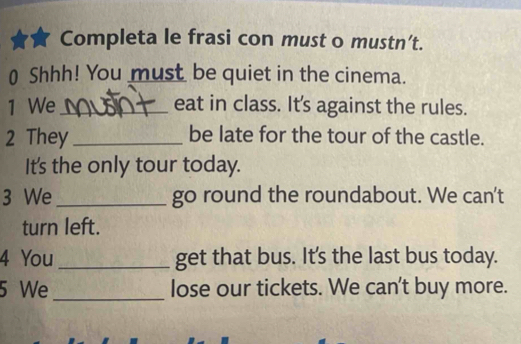 ★★ Completa le frasi con must o mustn't.
0 Shhh! You must be quiet in the cinema.
1 We mustn't eat in class. It's against the rules.
2 They __________ be late for the tour of the castle.
It's the only tour today.
3 We __________ go round the roundabout. We can't
turn left.
4 You __________ get that bus. It's the last bus today.
5 We __________ lose our tickets. We can't buy more.